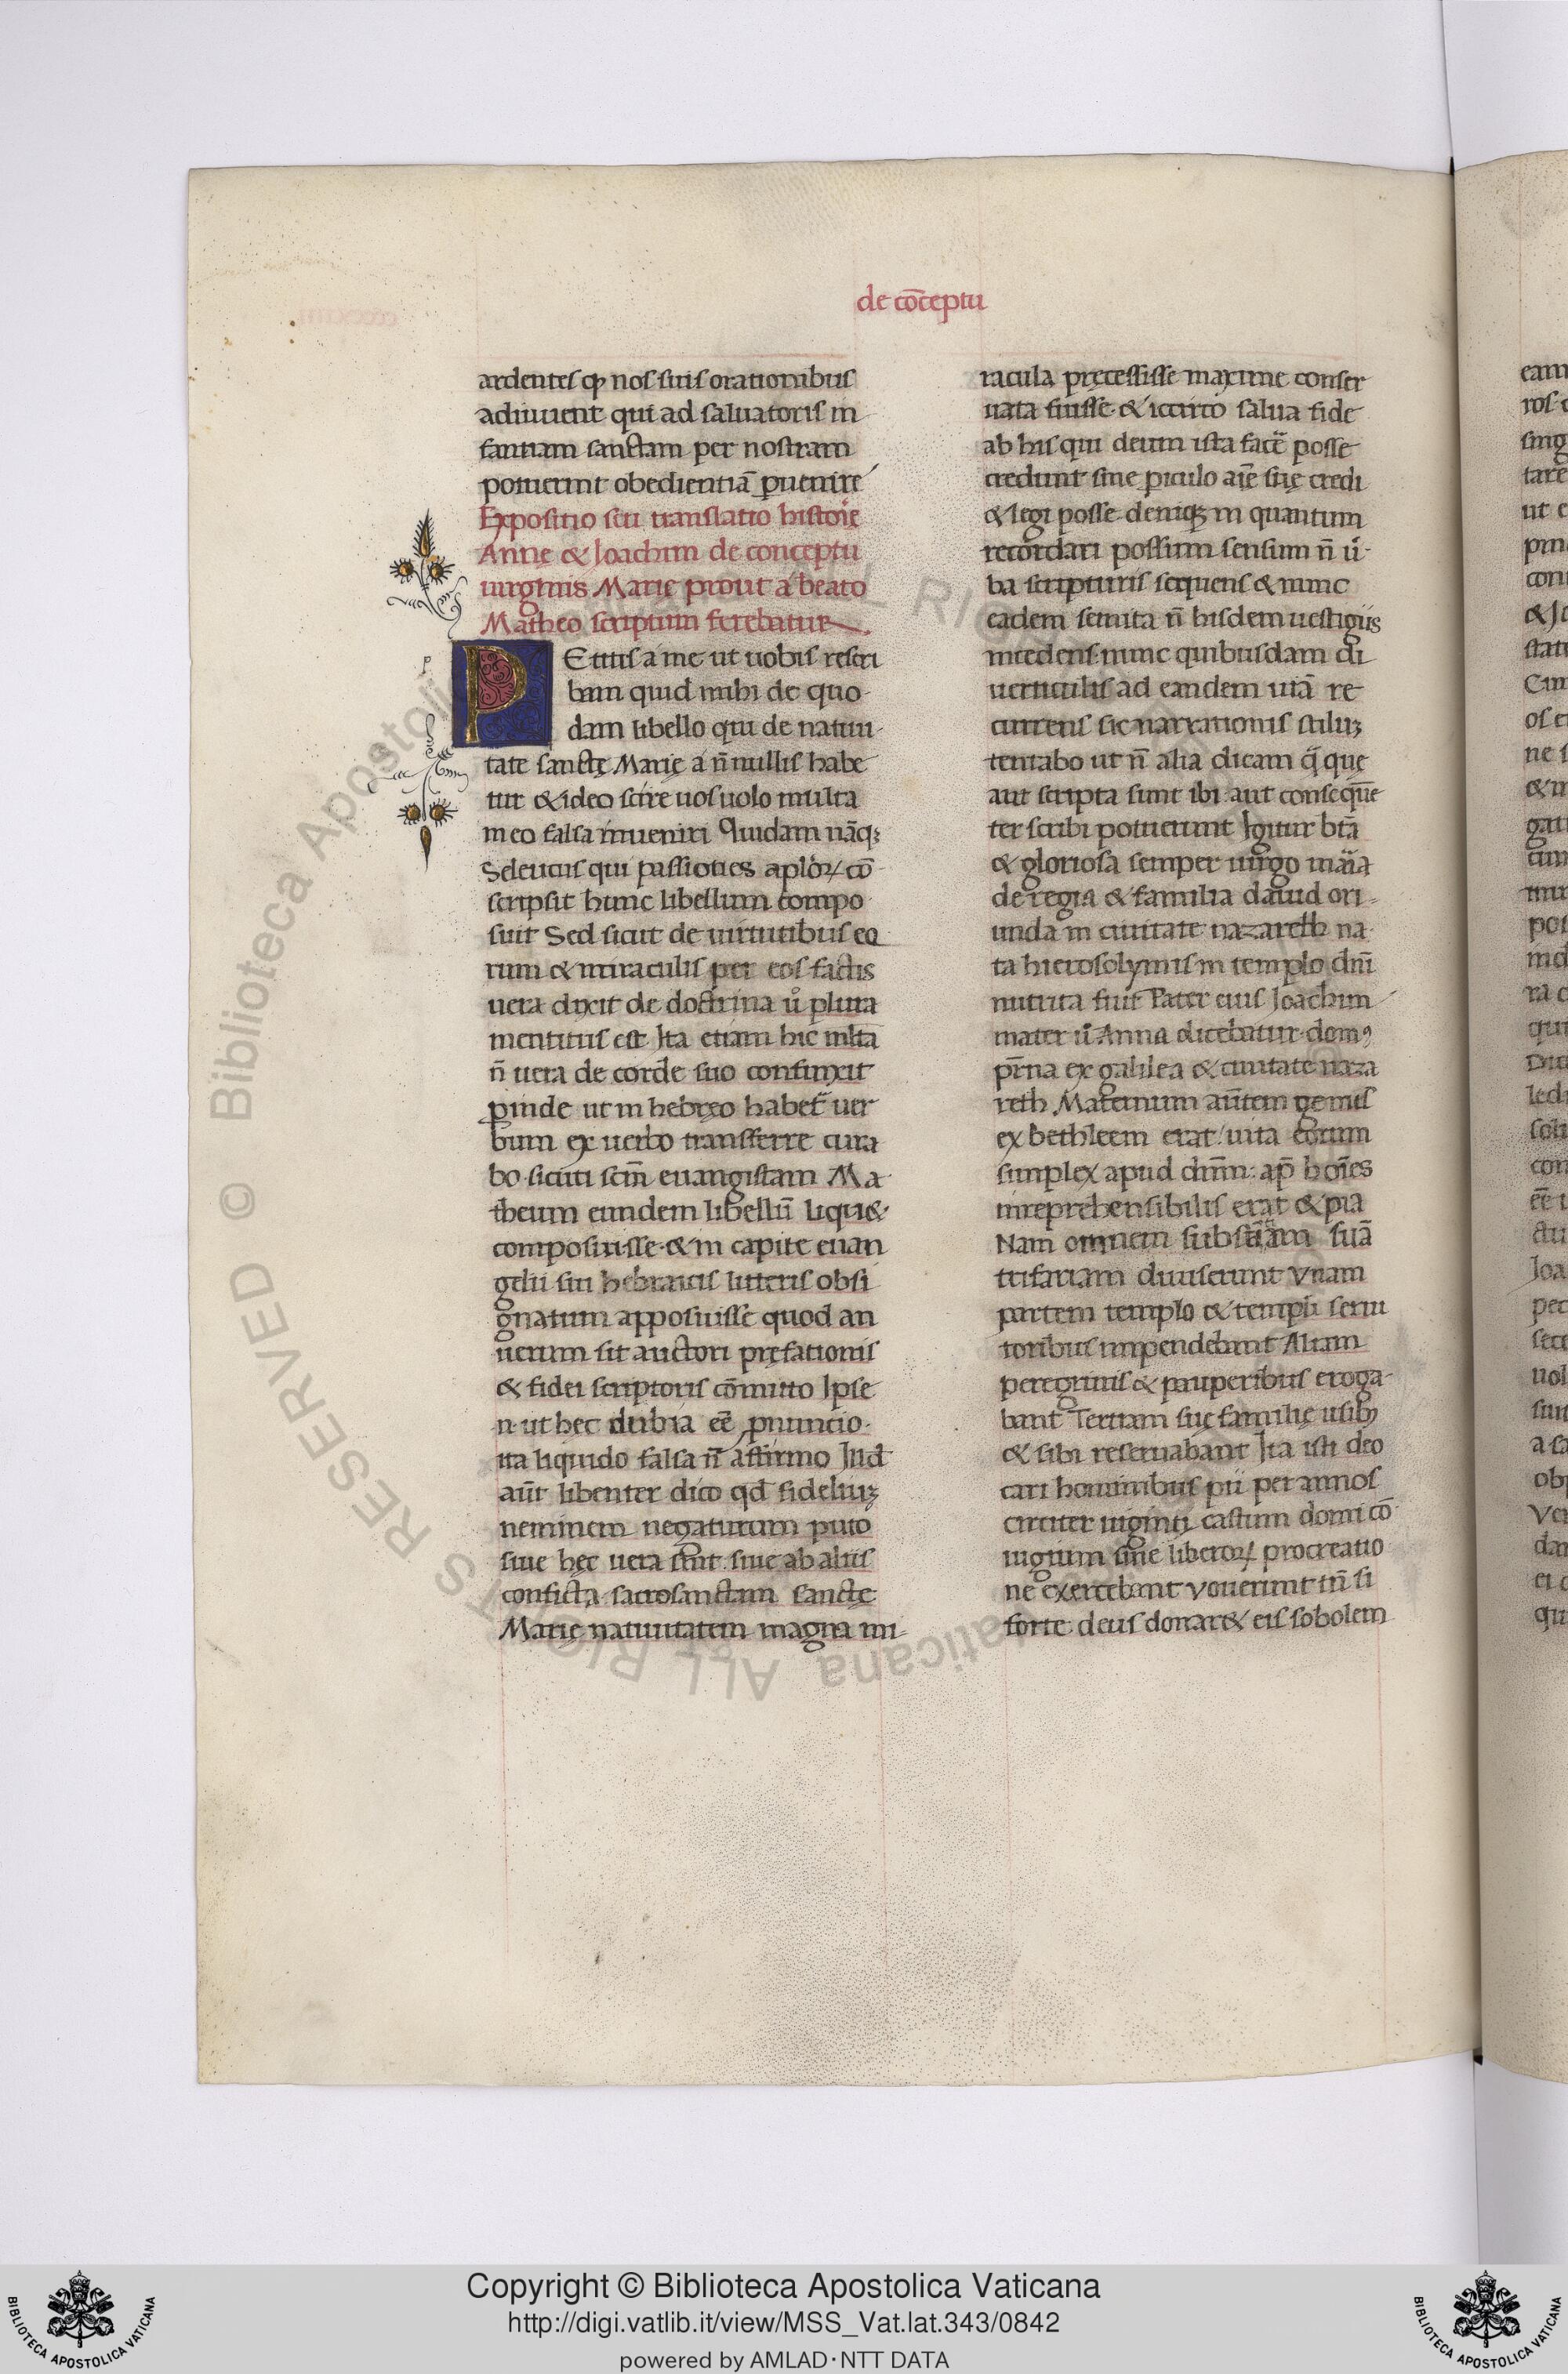 de cōceptu
ardentes qꝫ nos suis orationibus
adiuuent qui ad saluatoris in
fantiam sanctam per nostram
potuerint obedientiā ꝑuenire
Expositio seu translatio histoīe
Annę & Joachim de conceptu
uirginis Marię prout a beato
Matheo scriptum ferebatur
p
PEtitis a me ut uobis rescri
bam quid mihi de quo
dam libello qui de natiui
tate sanctę Marię a n̄nullis habe
tur & ideo scire uos uolo multa
in eo falsa inueniri Quidam nāqꝫ
Seleucus qui passiones aplōꝝ cō
scripsit hunc libellum compo
suit Sed sicut de uirtutibus eo
rum & miraculis per eos factis
uera dixit de doctrina u͛o plura
mentitus est Ita etiam hic mlta
n̄ uera de corde suo confinxit
ꝓinde ut in hebręo habet᷑ uer
bum ex uerbo transferre cura
bo sicuti scm̄ euangistam Ma
theum eundem libellū liqu&
composuisse & in capite euan
gelii sui hebraicis litteris obsi
gnatum apposuisse quod an
uerum sit auctori pręfationis
& fidei scriptoris cōmitto Ipse
n ut hec dubia eē ꝓnuncio
ita liquido falsa n̄ affirmo Illd
aūt libenter dico qd̄ fideliuꝫ
neminem negaturum puto
siue hęc uera sint siue ab aliis
conficta sacrosanctam sanctę
Marię natiuitatem magna mi
racula pręcessisse maxime conser
uata fuisse & iccirco salua fide
ab his qui deum ista facē posse
credunt sine ꝑiculo aīe suę credi
& legi posse deniqꝫ in quantum
recordari possum sensum n̄ u͛
ba scripturis sequens & nunc
eadem semita n̄ hisdem uestigiis
incedens nunc quibusdam di
uerticulis ad eandem uiā re
currens sic narrationis stiluꝫ
tentabo ut n̄ alia dicam q̄ que
aut scripta sunt ibi aut conseque᷑
ter scribi potuerunt Igitur btā
& gloriosa semper uirgo maīa
de regia & familia dauid ori
unda in ciuitate nazareth na
ta hierosolymis in templo dnī
nutrita fuit Pater eius Joachim
mater u͛ Anna dicebatur domꝰ
pr̄na ex galilea & ciuitate naza
reth Maternum autem genus
ex bethleem erat uita eorum
simplex apud dnm̄ ap̄ hoīes
inreprehensibilis erat & pia
Nam omnem substātiam suā
trifariam diuiserunt Vnam
partem templo & templi serui
toribus impendebant Aliam
peregrinis & pauperibus eroga
bant Tertiam suę familię usibꝫ
& sibi reseruabant Ita isti deo
cari hominibus pii per annos
circiter uiginti castum domi cō
iugium sine liberoꝝ procreatio
ne exercebant Vouerunt tn̄ si
forte deus donar& eis sobolem
Copyright © Biblioteca Apostolica Vaticana
http://digi.vatlib.it/view/MSS_Vat.lat.343/0842
powered by AMLAD·NTT DATA
BIBLIOTECA APOSTOLICA VATICANA
BIBLIOTECA APOSTOLICA VATICANA